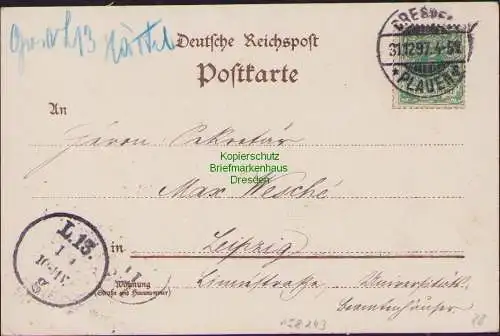 L 13
Deutsche Reichspost
Postkarte
DRESDEN
31.12.97. 4-5N
* PLAUEN *
An
Herrn Sekretär
Kopierschutz
Briefmarkenhaus
Dresden
Max Wesché
L.13.
in Leipzig
Wohnung
(Straße und Hausnummer)
Linnéstraße, Universität
Beamtenhäuser